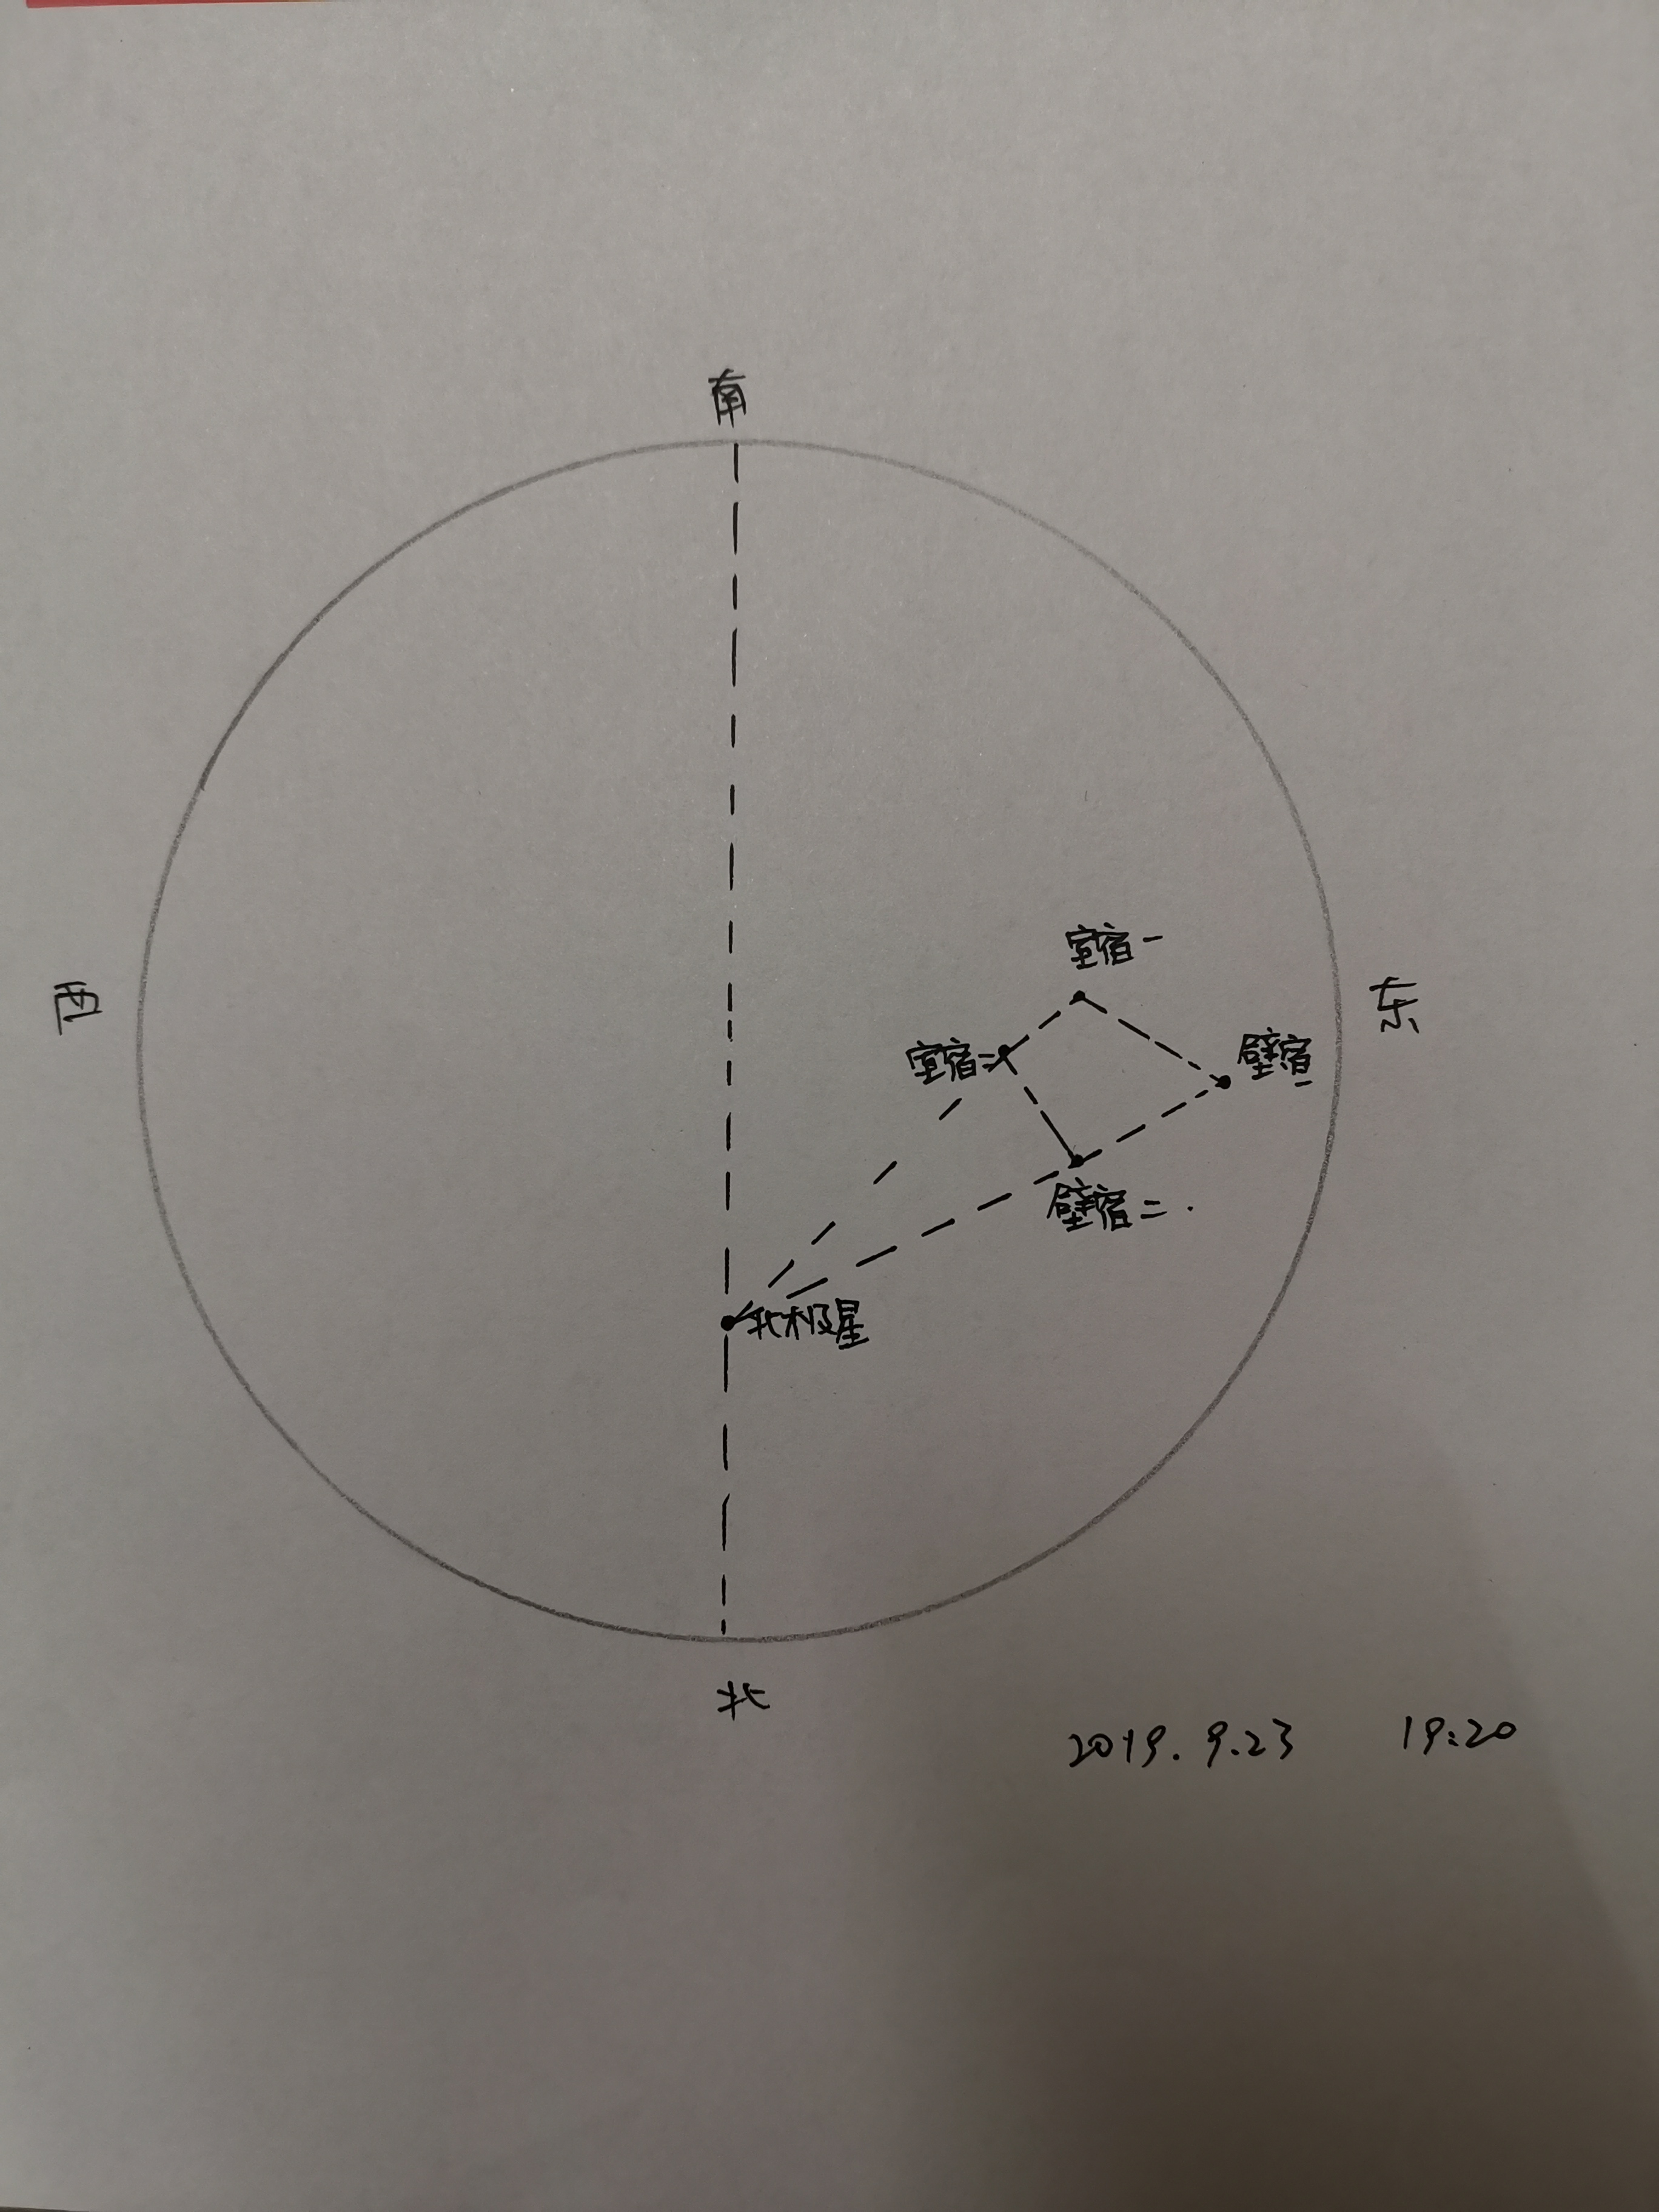 南
室宿一
西
东
室宿二
壁宿一
壁宿二
北极星
北
2019.9.23 19:20